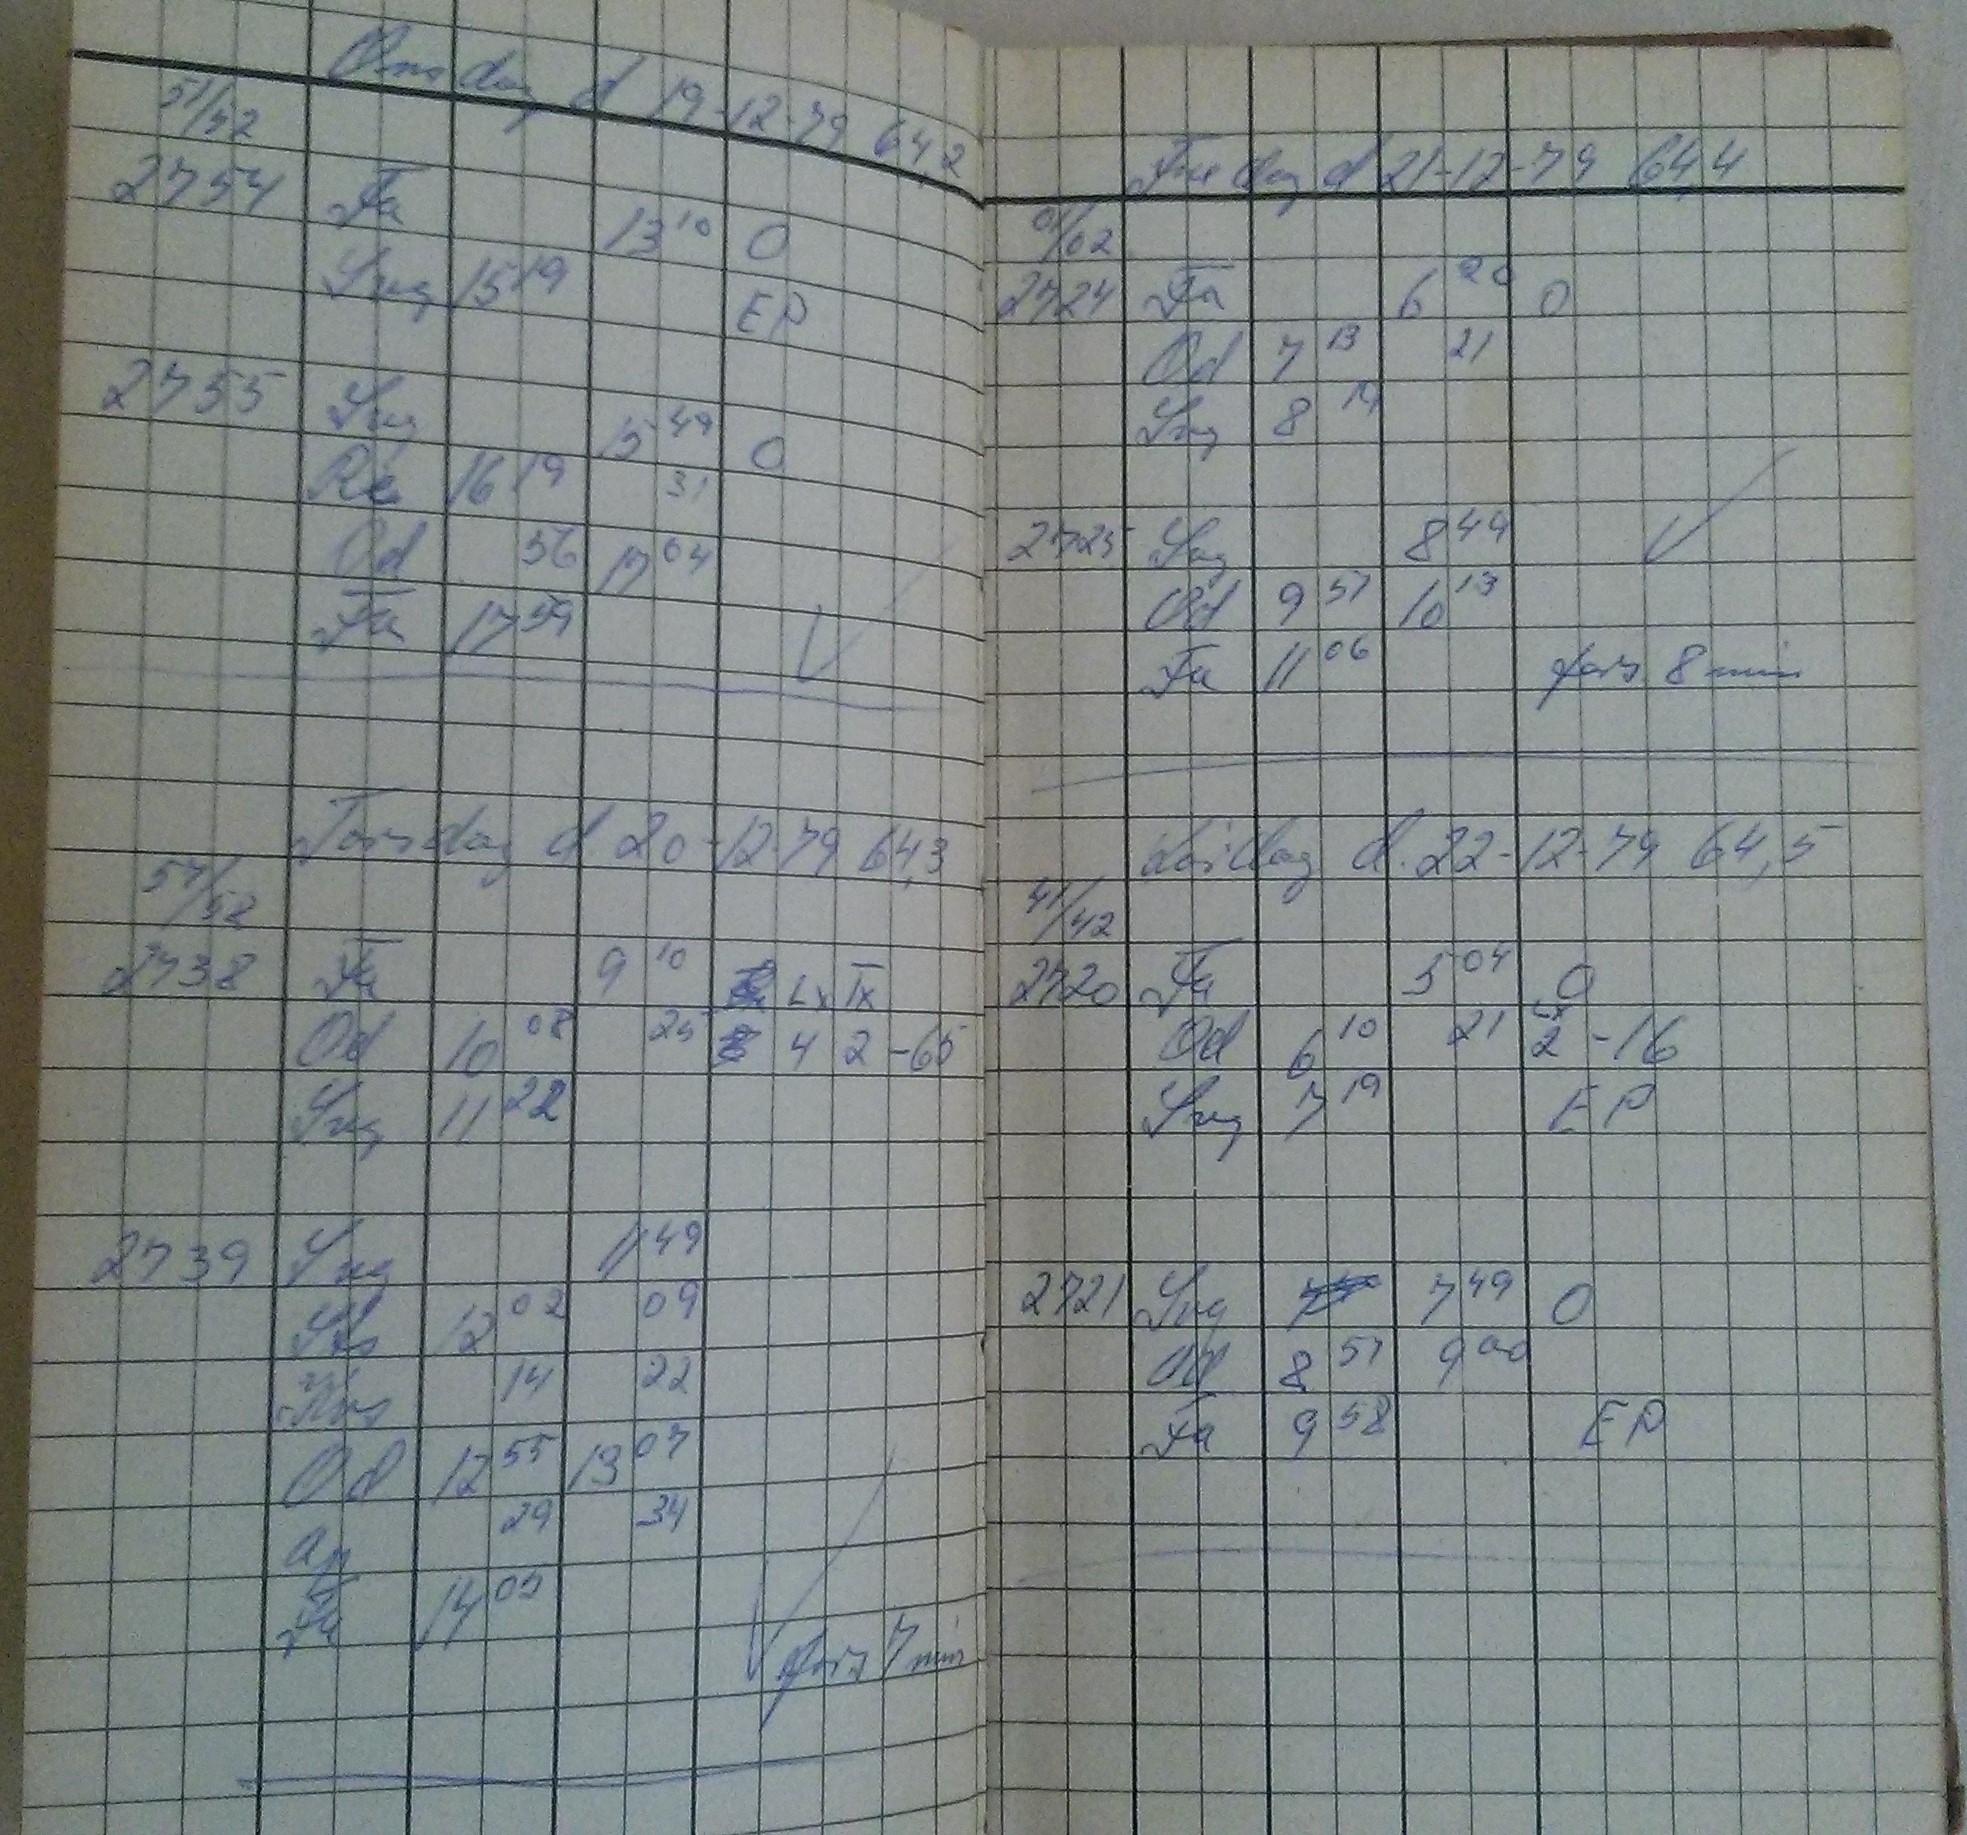 Onsdag d 19-12-79 64,2
51/52
2754 Fa 13 10 O
Svg 15 19 EP
2755 Svg 15 49 O
Rè 16 19 31
Od 56 17 04
Fa 17 59
Torsdag d 20-12-79 64,3
57/58
2738 Fa 9 10 Lx Tx
Od 10 08 25 4 2 -65
Svg 11 22
2739 Svg 11 49
12 02 09
14 22
Od 12 55 13 07
Ap 29 34
Fa 14 05
fors 7 min
Fredag d 21-12-79 64,4
01/02
2724 Fa 6 20 O
Od 7 13 21
Svg 8 19
2725 Svg 8 44
Od 9 57 10 13
Fa 11 06 fors 8 min
Lördag d. 22-12-79 64,5
41/42
2720 Fa 5 04 O
Od 6 10 21 2 -16
Svg 7 19 EP
2721 Svg 7 49 O
Od 8 57 9 00
Fa 9 58 EP